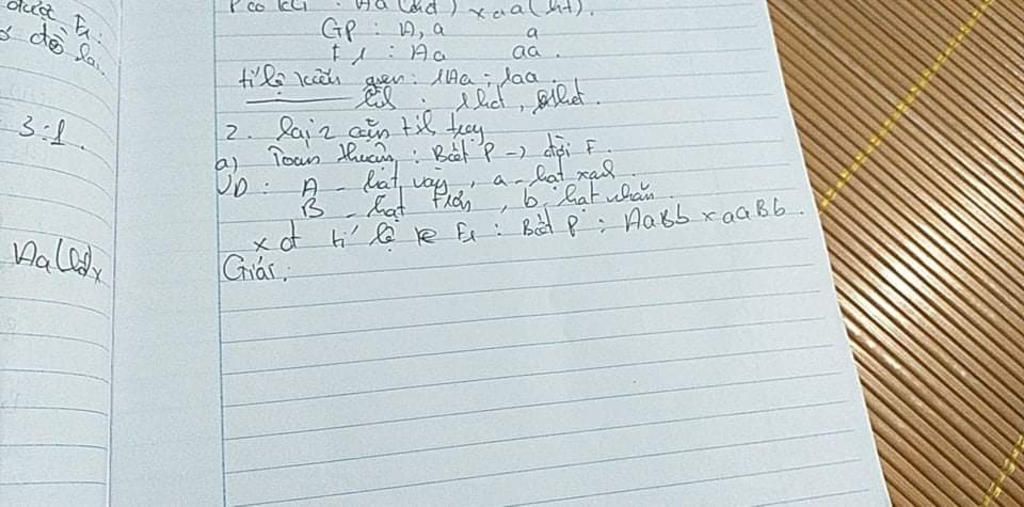 được F1:
đồ lai.
3:1.
Aa(
x
P có
: Aa ( ) x aa ( ).
GP : A, a a
F1 : Aa aa.
tỉ lệ kiểu gen: 1Aa : 1aa.
2. Lai 2 cặp
a) Toán thuận : Biết P -> đời F.
VD : A - hạt vàng, a - hạt xanh.
B - hạt trơn, b - hạt nhăn.
xđ tỉ lệ F1 : Biết P : AaBb x aaBb.
Giải: